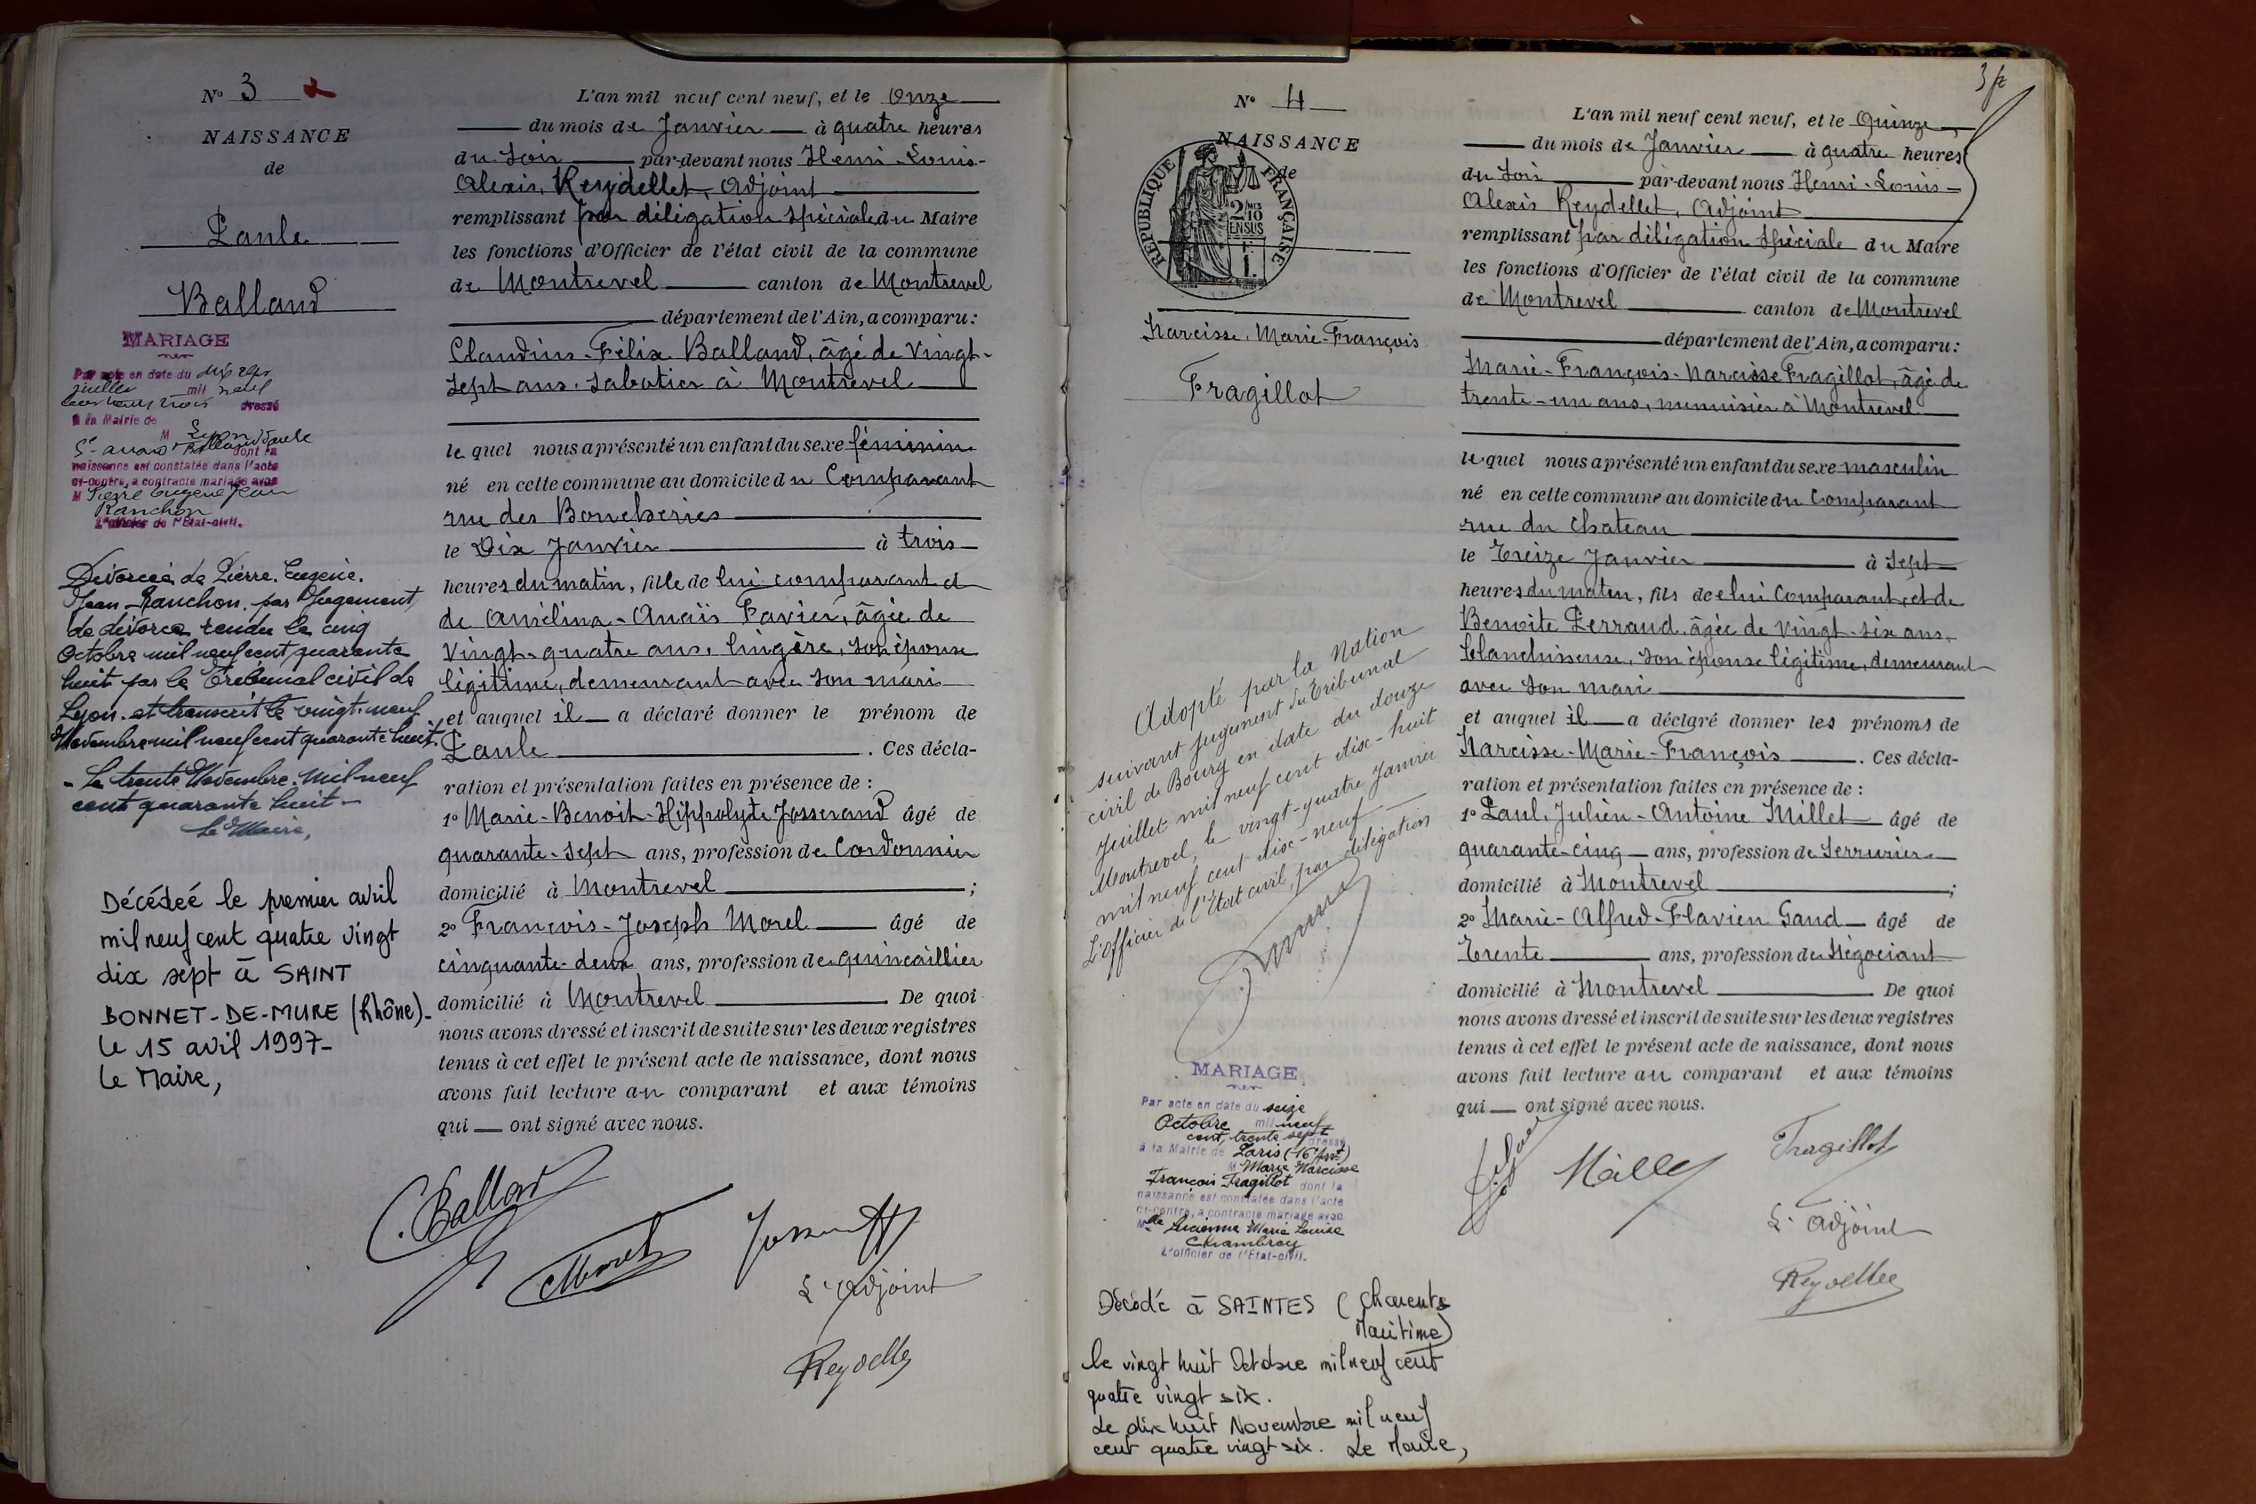 N° 3
NAISSANCE
de
Paule
Balland
MARIAGE
Par acte en date du dix sept
juillet mil neuf
cent trente trois dressé
à la Mairie de Lyon
M Balland Paule
dont la
naissance est constatée dans l'acte
ci-contre, a contracté mariage avec
M Pierre Eugène Jean
Ranchon
L'officier de l'Etat-civil.
Divorcée de Pierre. Eugène.
Jean Ranchon. par Jugement
de divorce rendu le cinq
Octobre mil neuf cent quarante
huit par le Tribunal civil de
Lyon. et transcrit le vingt-neuf
Novembre mil neuf cent quarante huit.
- Le trente Novembre. Mil neuf
cent quarante huit -
Le Maire,
Décédeé le premier avril
mil neuf cent quatre vingt
dix sept à SAINT
BONNET-DE-MURE (Rhône)-
le 15 avril 1997-
le Maire,
L'an mil neuf cent neuf, et le Onze
du mois de Janvier à quatre heures
du soir par-devant nous Henri-Louis-
Alexis, Reydellet, Adjoint
remplissant par délégation spéciale du Maire
les fonctions d'Officier de l'état civil de la commune
de Montrevel canton de Montrevel
département de l'Ain, a comparu:
Claudius-Félix Balland, âgé de vingt-
sept ans, sabotier à Montrevel
le quel nous a présenté un enfant du sexe féminin
né en cette commune au domicile du Comparant
rue des Boucheries
le Dix Janvier à trois
heures du matin, fille de lui comparant et
de Amélina-Anaïs Favier, âgée de
vingt-quatre ans, lingère, son épouse
légitime, demeurant avec son mari
et auquel il a déclaré donner le prénom de
Paule . Ces décla-
ration et présentation faites en présence de :
1° Marie-Benoit-Hippolyte Josserand âgé de
quarante-sept ans, profession de Cordonnier
domicilié à Montrevel ;
2° François-Joseph Morel âgé de
cinquante-deux ans, profession de quincaillier
domicilié à Montrevel De quoi
nous avons dressé et inscrit de suite sur les deux registres
tenus à cet effet le présent acte de naissance, dont nous
avons fait lecture au comparant et aux témoins
qui ont signé avec nous.
C. Balland
Morel
L'adjoint
Reydellet
3
N° 4
NAISSANCE
de
RÉPUBLIQUE FRANÇAISE
2/10
EN SUS
Narcisse, Marie-François
Fragillot
Adopté par la Nation
suivant jugement du Tribunal
civil de Bourg en date du douze
Juillet mil neuf cent dix-huit
Montrevel, le vingt-quatre Janvier
mil neuf cent dix-neuf
L'officier de l'Etat civil, par délégation
MARIAGE
Par acte en date du seize
Octobre mil neuf
cent, trente sept dressé
à la Mairie de Paris (16e Arrt)
M Marie Narcisse
François Fragillot dont la
naissance est constatée dans l'acte
ci-contre, a contracté mariage avec
Melle Lucienne Marie Louise
L'officier de l'Etat-civil.
Décédé à SAINTES (Charente
Maritime)
le vingt huit Octobre mil neuf cent
quatre vingt six.
Le dix huit Novembre mil neuf
cent quatre vingt six. Le Maire,
L'an mil neuf cent neuf, et le Quinze
du mois de Janvier à quatre heures
du soir par-devant nous Henri-Louis-
Alexis Reydellet, Adjoint
remplissant par délégation spéciale du Maire
les fonctions d'Officier de l'état civil de la commune
de Montrevel canton de Montrevel
département de l'Ain, a comparu:
Marie-François-Narcisse Fragillot, âgé de
trente-un ans, menuisier à Montrevel
le quel nous a présenté un enfant du sexe masculin
né en cette commune au domicile du Comparant
rue du Chateau
le Treize Janvier à Sept
heures du matin, fils de lui Comparant, et de
Benoite Perraud âgée de vingt-six ans,
blanchisseuse, son épouse légitime, demeurant
avec son mari
et auquel il a déclaré donner les prénoms de
Narcisse-Marie-François . Ces décla-
ration et présentation faites en présence de :
1° Paul, Julien-Antoine Millet âgé de
quarante-cinq ans, profession de Serrurier
domicilié à Montrevel ;
2° Marie-Alfred-Flavien Gand âgé de
Trente ans, profession de Négociant
domicilié à Montrevel De quoi
nous avons dressé et inscrit de suite sur les deux registres
tenus à cet effet le présent acte de naissance, dont nous
avons fait lecture au comparant et aux témoins
qui ont signé avec nous.
Fragillot
L'adjoint
Reydellet